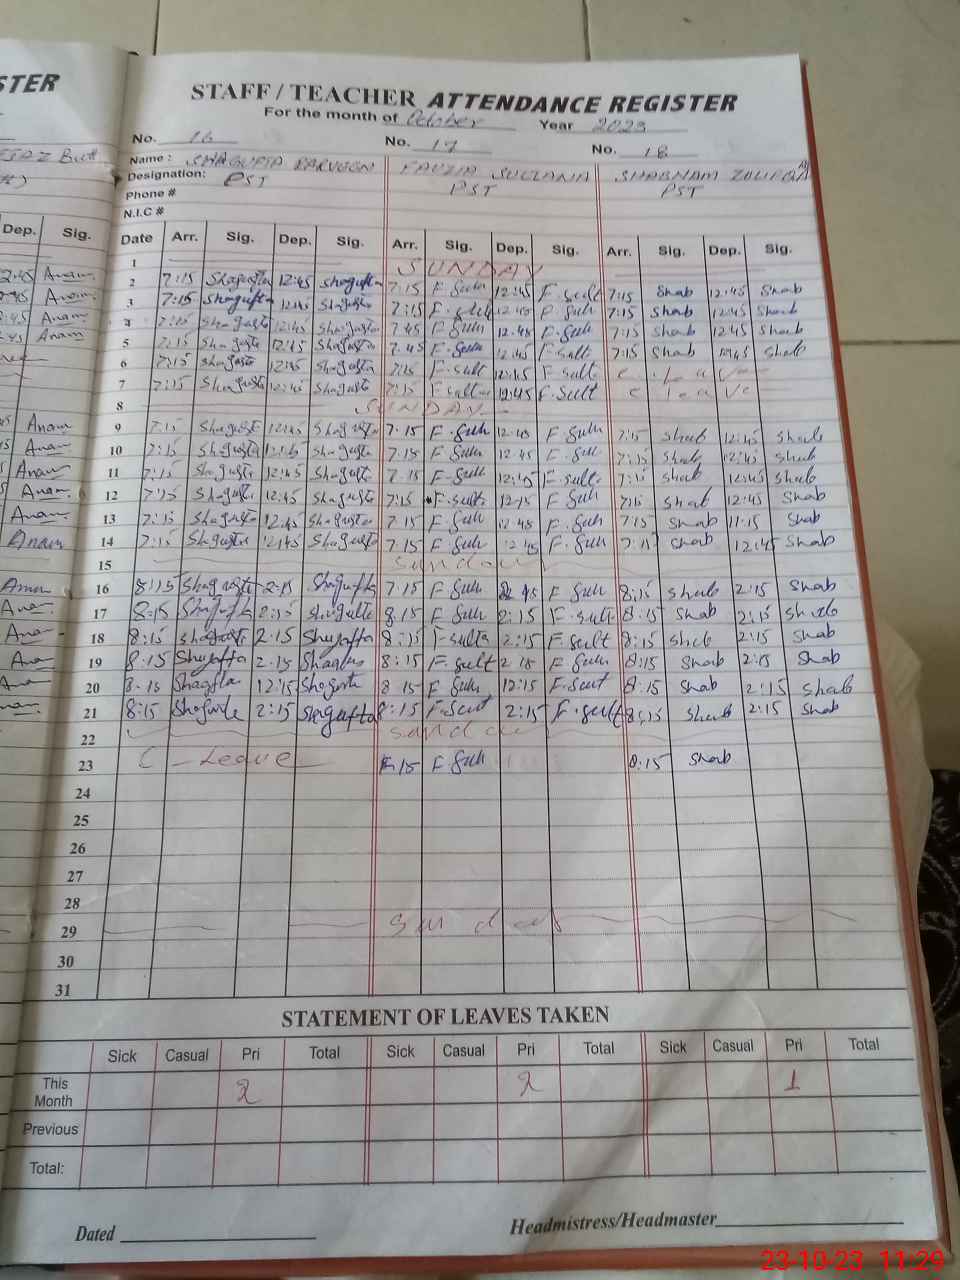 STER
STAFF / TEACHER ATTENDANCE REGISTER
For the month of October Year 2023
No. 16 No. 17 No. 18
Name : SHAGUFTA PARVEEN FAUZIA SULTANA SHABNAM
Designation: PST PST PST
Phone #
N.I.C #
Dep. Sig. Date Arr. Sig. Dep. Sig. Arr. Sig. Dep. Sig. Arr. Sig. Dep. Sig.
1 SUNDAY
Anam 2 7:15 Shagufta 12:45 Shagufta 7:15 F. Sult 12:45 F. Sult 7:15 Shab 12:45 Shab
Anam 3 7:15 Shagufta 12:45 Shagufta 7:15 F. Sult 12:45 F. Sult 7:15 Shab 12:45 Shab
Anam 4 7:15 Shagufta 12:45 Shagufta 7:45 F Sult 12:45 F. Sult 7:15 Shab 12:45 Shab
Anam 5 7:15 Shagufta 12:45 Shagufta 7:45 F. Sult 12:45 F. Sult 7:15 Shab 12:45 Shab
6 7:15 Shagufta 12:45 Shagufta 7:15 F. Sult 12:45 F. Sult c. leave
7 7:15 Shagufta 12:45 Shagufta 7:15 F. Sult 12:45 F. Sult c leave
8 SUNDAY
Anam 9 7:15 Shagufta 12:45 Shagufta 7:15 F. Sult 12:45 F. Sult 7:15 Shab 12:45 Shab
Anam 10 7:15 Shagufta Shagufta 7:15 F. Sult 12:45 F. Sult 7:15 Shab 12:45 Shab
Anam 11 7:15 Shagufta 12:45 Shagufta 7:15 F. Sult 12:45 F. Sult 7:15 Shab 12:45 Shab
Anam 12 7:15 Shagufta 12:45 Shagufta 7:15 F. Sult 12:15 F Sult 7:15 Shab 12:45 Shab
Anam 13 7:15 Shagufta 12:45 Shagufta 7:15 F Sult 12:45 F. Sult 7:15 Shab 11:15 Shab
Anam 14 7:15 Shagufta 12:45 Shagufta 7:15 F Sult 12:45 F. Sult 7:15 Shab 12:45 Shab
15 Sunday
Anam 16 8:15 Shagufta 2:15 Shagufta 7:15 F Sult F Sult 8:15 Shab 2:15 Shab
Ana 17 8:15 Shagufta 2:15 Shagufta 8:15 F Sult 2:15 F. Sult 8:15 Shab 2:15 Shab
Ana 18 8:15 Shagufta 2:15 Shagufta 8:15 F Sulta 2:15 F. Sult 8:15 Shab 2:15 Shab
Ana 19 8:15 Shagufta 2:15 Shagufta 8:15 F. Sult 2:15 F Sult 8:15 Shab 2:15 Shab
Ana 20 8:15 Shagufta 12:15 Shagufta 8:15 F Sult 12:15 F. Sult 8:15 Shab 2:15 Shab
21 8:15 Shagufta 2:15 Shagufta 8:15 F. Sult 2:15 F. Sult 8:15 Shab 2:15 Shab
22 Sunday
23 C - Leave 8:15 F. Sult 8:15 Shab
24
25
26
27
28
29 Sunday
30
31
STATEMENT OF LEAVES TAKEN
Sick Casual Pri Total Sick Casual Pri Total Sick Casual Pri Total
This Month 2 2 1
Previous
Total:
Dated Headmistress/Headmaster
23-10-23 11:29